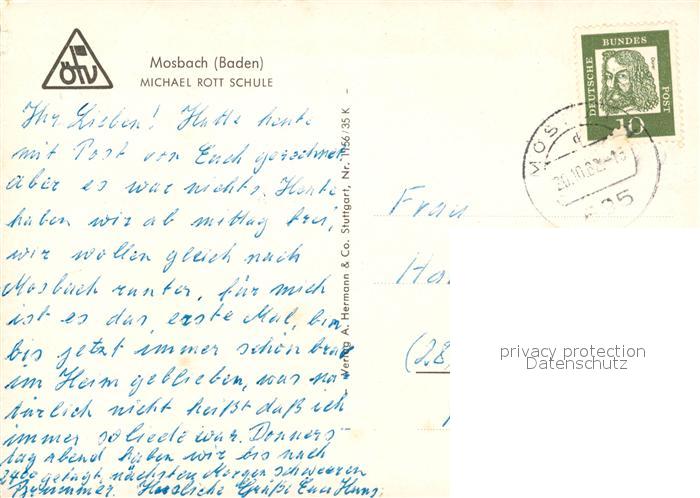 ÖTV
Mosbach (Baden)
MICHAEL ROTT SCHULE
Ihr Lieben! Hatte heute
mit Post von Euch gerechnet
aber es war nichts. Heute
haben wir ab mittag frei,
wir wollen gleich nach
Mosbach runter, für mich
ist es das erste Mal, bin
bis jetzt immer schön brav
im Heim geblieben, was na-
türlich nicht heißt daß ich
immer soliede war. Donners-
tag abend haben wir bis nach
2400 getagt, nächsten Morgen schweeren
Brummer. Herzliche Grüße Euer Hans.
- Verlag A. Hermann & Co. Stuttgart, Nr. 1156/35 K -
DEUTSCHE BUNDES POST
Dürer
10
MOS
d
26.10.62-18
Frau
Ha
(28
privacy protection
Datenschutz